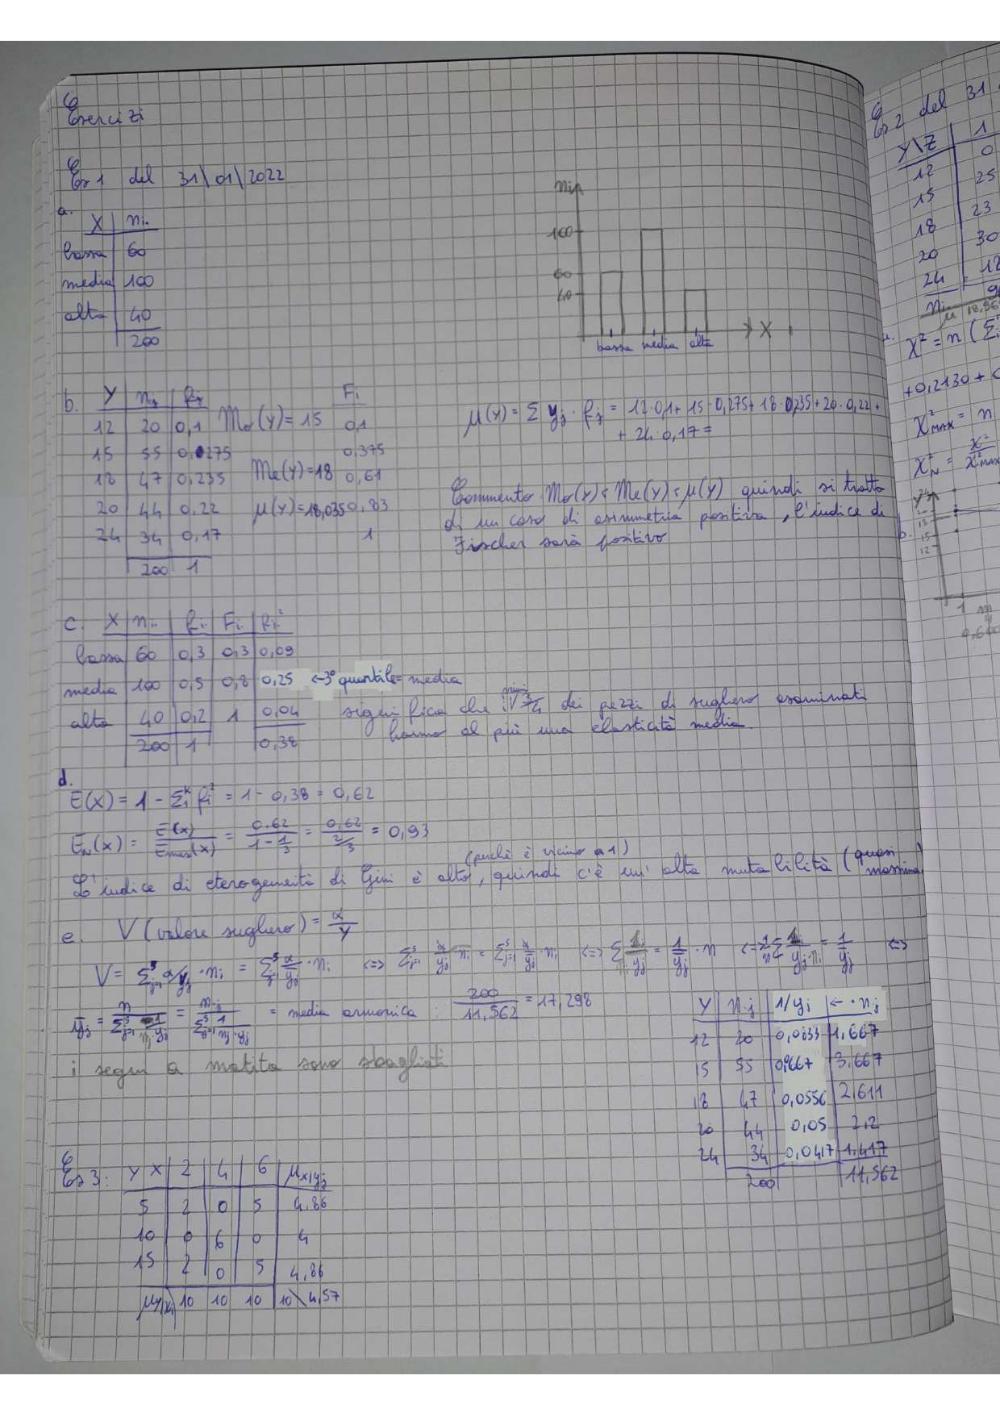 Esercizi
Es 1 del 31\01\2022
a.
X | ni.
bassa | 60
media | 100
alta | 40
200
ni.
100
60
40
bassa media alta
X
b. Y | n.j | f.j | Fj
12 | 20 | 0,1 | 0,1
15 | 55 | 0,275 | 0,375
18 | 47 | 0,235 | 0,61
20 | 44 | 0,22 | 0,83
24 | 34 | 0,17 | 1
200 | 1
Mo(Y)=15
Me(Y)=18
μ(Y)=18,035
μ(Y) = Σ yj · fj = 12·0,1 + 15·0,275 + 18·0,235 + 20·0,22 +
+ 24·0,17 =
Commento Mo(Y)<Me(Y)<μ(Y) quindi si tratta
di un caso di asimmetria positiva, l'indice di
Fischer sarà positivo
c. X | ni. | fi. | Fi. | fi²
bassa | 60 | 0,3 | 0,3 | 0,09
media | 100 | 0,5 | 0,8 | 0,25 ← 3° quartile = media
alta | 40 | 0,2 | 1 | 0,04
200 | 1 | 0,38
significa che i 3/4 dei pezzi di sughero esaminati
hanno al più una elasticità media
d.
E(X) = 1 - Σ fi² = 1 - 0,38 = 0,62
EN(x) = E(x)/Emax(x) = 0.62/(1-1/3) = 0,62/(2/3) = 0,93
(perchè è vicino a 1)
L'indice di eterogeneità di Gini è alto, quindi c'è un' alta mutabilità (quasi massima
e. V (valore sughero) = α/Y
V = Σ α/yj · nj = Σ α/yj · nj <=> Σ α/yj nj = Σ α/yj · nj <=> Σ 1/yj = 1/yj · n <=> 1/n Σ 1/yj·nj = 1/yj <=>
= media armonica : 200/11,562 = 17,298
i segni a matita sono sbagliati
Y | n.j | 1/yj | ← · nj
12 | 20 | 0,0833 | 1,667
15 | 55 | 0,0667 | 3,667
18 | 47 | 0,0556 | 2,611
20 | 44 | 0,05 | 2,2
24 | 34 | 0,0417 | 1,417
200 | 11,562
Es 3: Y X | 2 | 4 | 6 | μx|yj
5 | 2 | 0 | 5 | 4,86
10 | 0 | 6 | 0 | 4
15 | 2 | 0 | 5 | 4,86
μy|xi | 10 | 10 | 10 | 10\4,57
Es 2 del 31
Y\Z | 1
12 | 0
15 | 25
18 | 23
20 | 30
24 | 12
X² = n (Σ
+0,2130 +
X²MAX = n
X²N = X²/X²MAX
b.